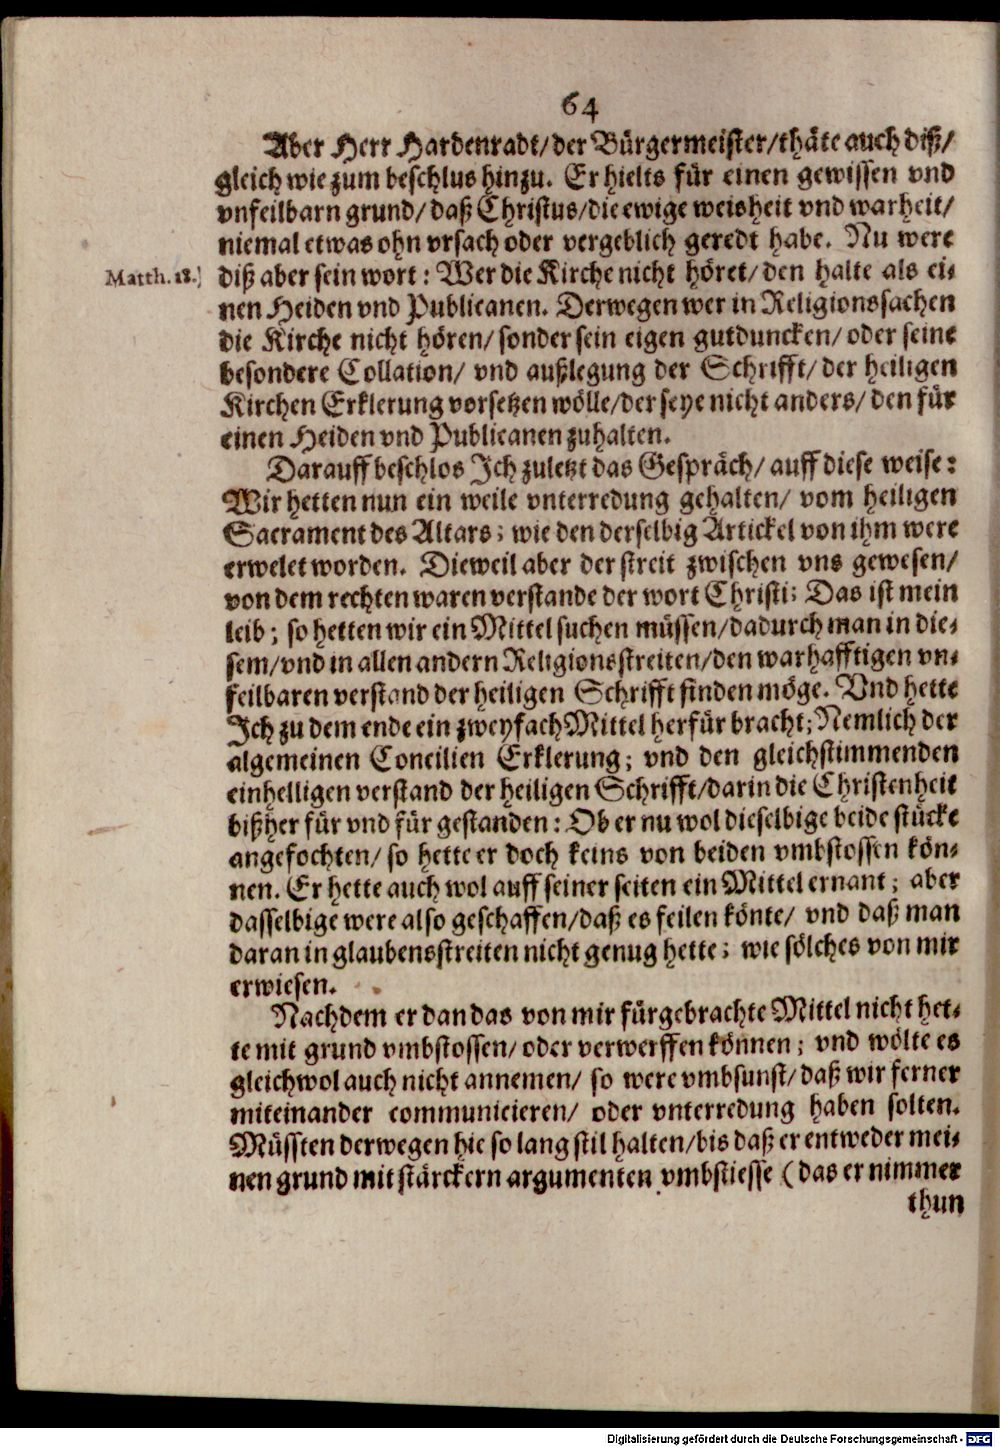 64
Aber Herr Hardenradt/der Bürgermeister/thäte auch diß/
gleich wie zum beschlus hinzu. Er hielts für einen gewissen vnd
vnfeilbarn grund/daß Christus/die ewige weisheit vnd warheit/
niemal etwas ohn vrsach oder vergeblich geredt habe. Nu were
Matth. 18.
diß aber sein wort: Wer die Kirche nicht höret/den halte als ei-
nen Heiden vnd Publicanen. Derwegen wer in Religionssachen
die Kirche nicht hören/sonder sein eigen gutduncken/oder seine
besondere Collation/ vnd außlegung der Schrifft/der heiligen
Kirchen Erklerung vorsetzen wölle/der seye nicht anders/den für
einen Heiden vnd Publicanen zuhalten.
Darauff beschlos Ich zuletzt das Gespräch/auff diese weise:
Wir hetten nun ein weile vnterredung gehalten/ vom heiligen
Sacrament des Altars; wie den derselbig Artickel von ihm were
erwelet worden. Dieweil aber der streit zwischen vns gewesen/
von dem rechten waren verstande der wort Christi; Das ist mein
leib; so hetten wir ein Mittel suchen müssen/dadurch man in die-
sem/vnd in allen andern Religionsstreiten/den warhafftigen vn-
feilbaren verstand der heiligen Schrifft finden möge. Vnd hette
Ich zu dem ende ein zweyfach Mittel herfür bracht; Nemlich der
algemeinen Concilien Erklerung; vnd den gleichstimmenden
einhelligen verstand der heiligen Schrifft/darin die Christenheit
bißher für vnd für gestanden: Ob er nu wol dieselbige beide stücke
angefochten/so hette er doch keins von beiden vmbstossen kön-
nen. Er hette auch wol auff seiner seiten ein Mittel ernant; aber
dasselbige were also geschaffen/daß es feilen könte/ vnd daß man
daran in glaubensstreiten nicht genug hette; wie sölches von mir
erwiesen.
Nachdem er dan das von mir fürgebrachte Mittel nicht het-
te mit grund vmbstossen/oder verwerffen können; vnd wölte es
gleichwol auch nicht annemen/ so were vmbsunst/daß wir ferner
miteinander communicieren/ oder vnterredung haben solten.
Müssten derwegen hie so lang stil halten/bis daß er entweder mei-
nen grund mit stärckern argumenten vmbstiesse (das er nimmer
thun
Digitalisierung gefördert durch die Deutsche Forschungsgemeinschaft - DFG